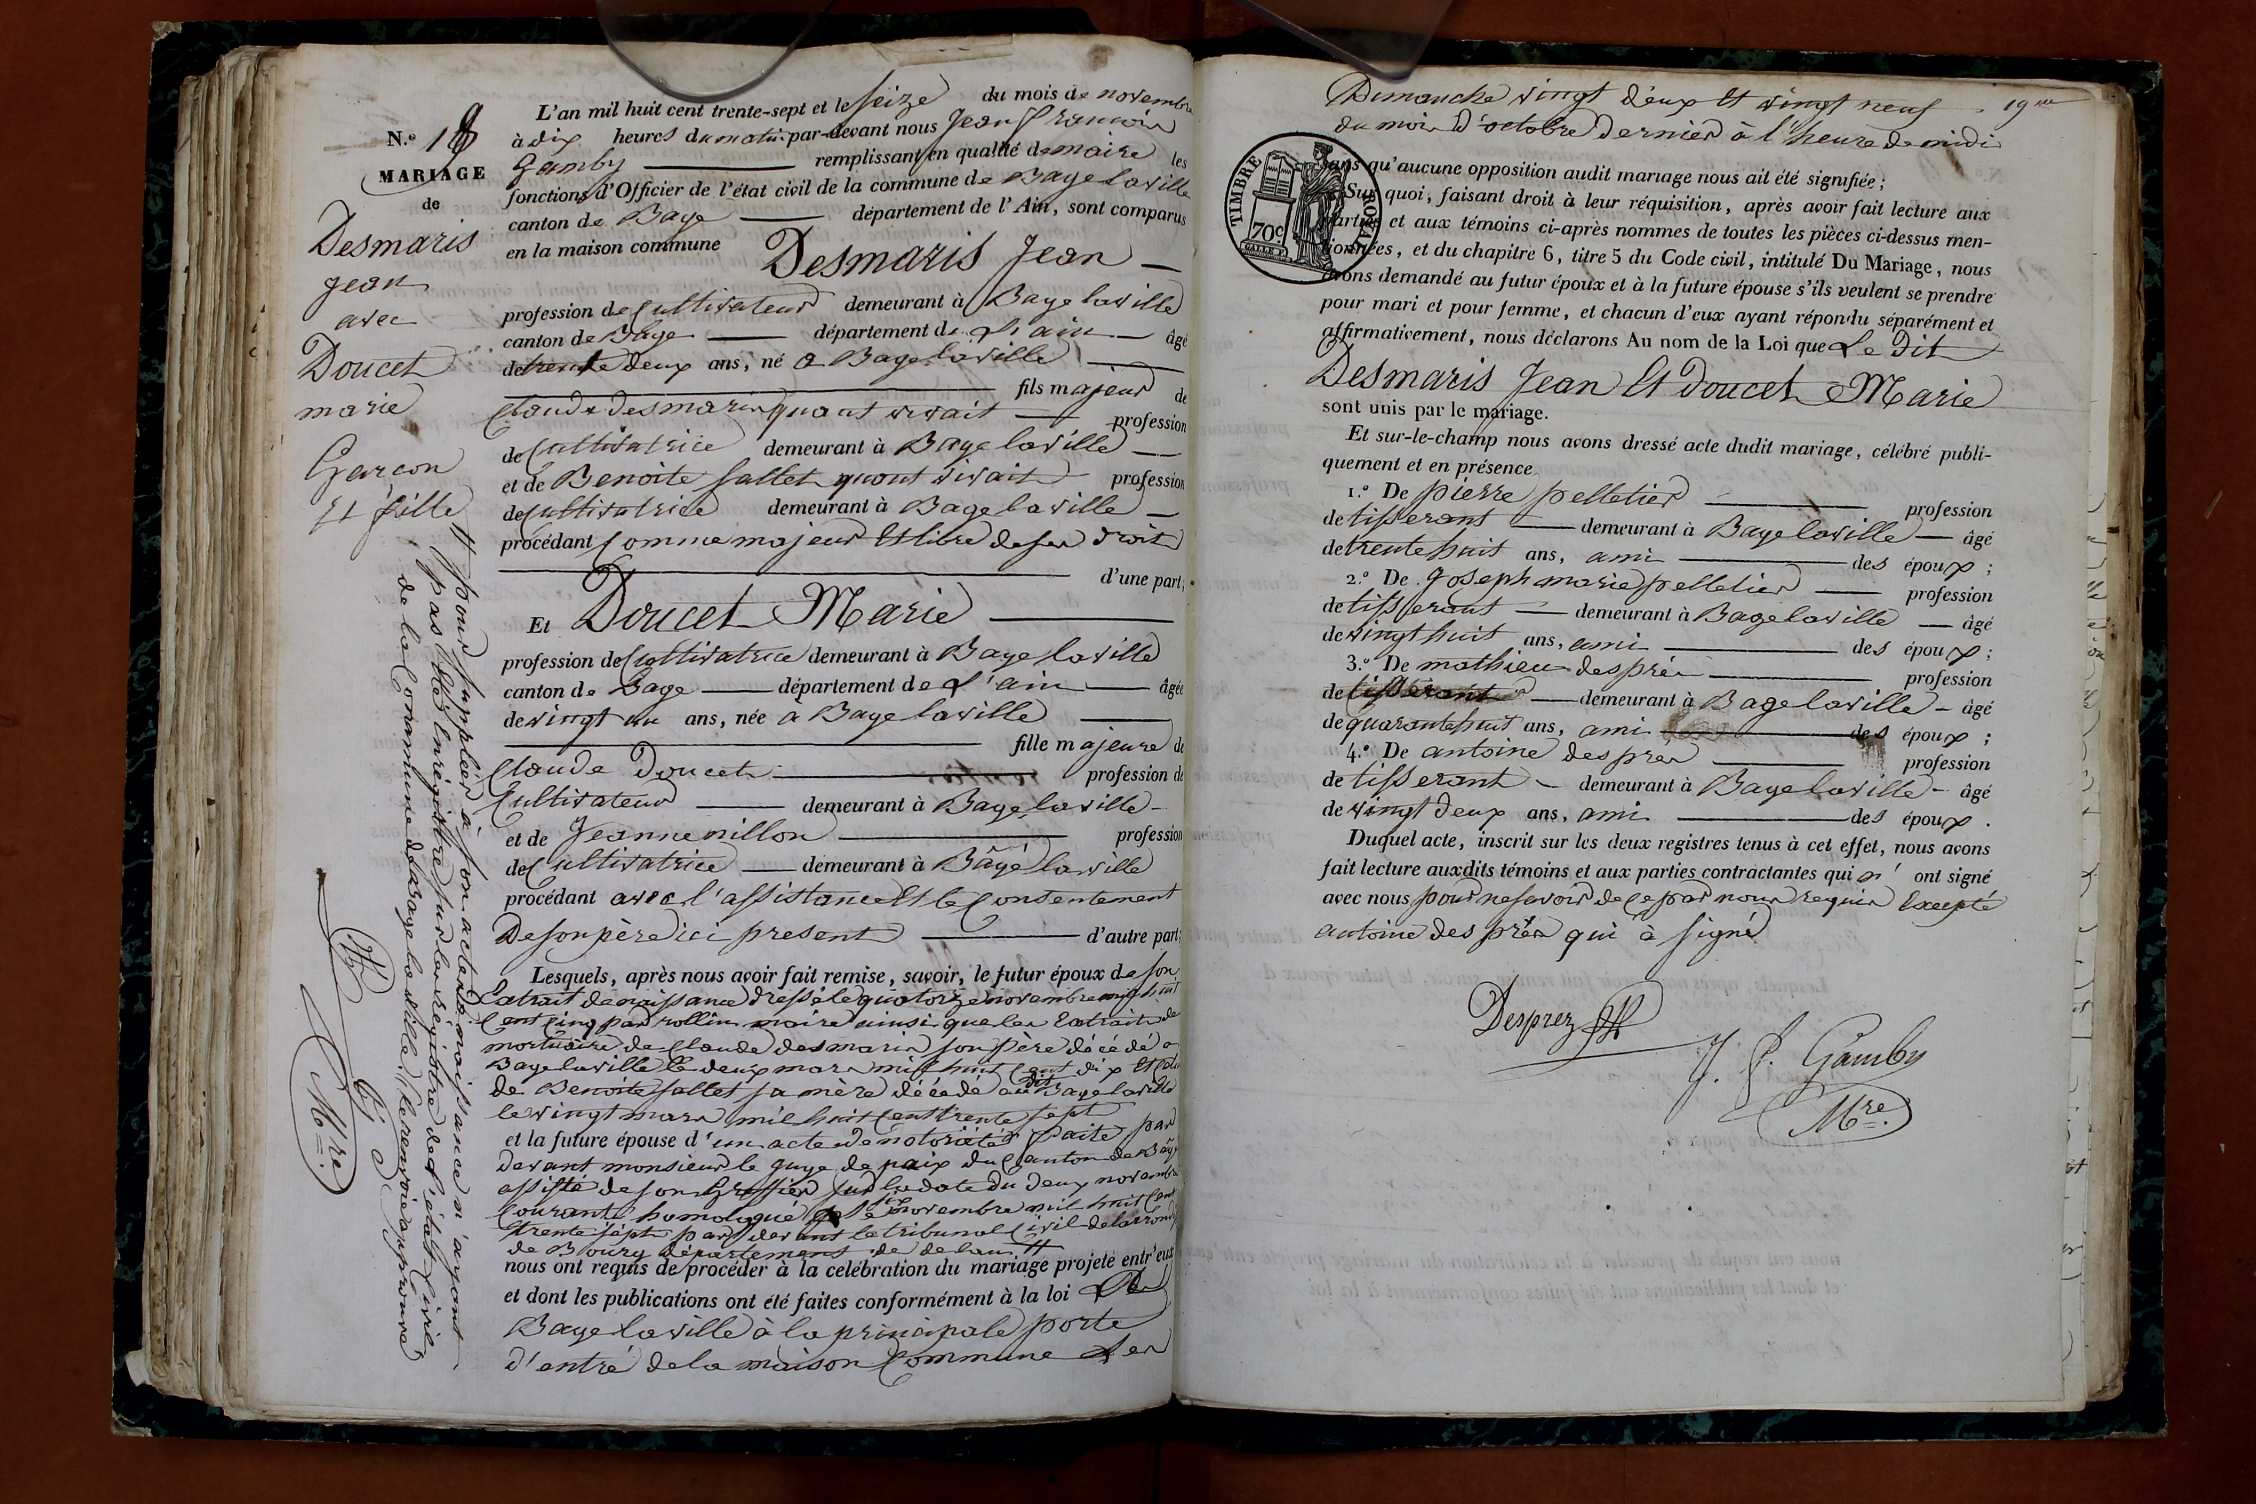 N.º 18
MARIAGE
de
Desmaris
Jean
avec
Doucet
marie
Garçon
Et fille
L'an mil huit cent trente-sept et le seize du mois de novembre
à dix heures du matin par-devant nous Jean francois
Gamby remplissant en qualité de maire les
fonctions d'Officier de l'état civil de la commune de Bage laville
canton de Bage département de l'Ain, sont comparus
en la maison commune Desmaris Jean
profession de Cultivateur demeurant à Bage laville
canton de Bage département de L'ain âgé
de trente deux ans, né a Bage laville
fils majeur de
Claude desmaris quant vivait profession
de Cultivatrice demeurant à Bage laville
et de Benoite fallet quant vivait profession
de Cultivatrice demeurant à Bage laville
procédant Comme majeur Et libre de ses droits
d'une part;
Et Doucet Marie
profession de Cultivatrice demeurant à Bage laville
canton de Bage département de L'ain âgée
de vingt un ans, née a Bage laville
fille majeure de
Claude Doucet profession de
Cultivateur demeurant à Bage laville
et de Jeanne nillon profession
de Cultivatrice demeurant à Bâgé laville
procédant avec l'assistance Et le Consentement
De son père ici present d'autre part;
Lesquels, après nous avoir fait remise, savoir, le futur époux de son
Extrait de naissance dressé le quatorze novembre mil huit
Cent Cinq par rollin maire ainsi que les Extraits de
mortuaire de Claude desmaris son père décédé a
Bage laville le deux mars mil huit Cent dix Et celui
de Benoite fallet sa mère décédé audit Bage laville
le vingt mars mil huit Cent trente sept
et la future épouse d'un acte de notoriété faite par
devant monsieur le juge de paix du Canton de Bâgé
assisté de son Greffier sur la date du deux novembre
Courant homologué le six novembre mil huit Cent
trente sept par devant le tribunal Civil de l'arrond
de Bourg département de de lain #
nous ont requis de procéder à la célébration du mariage projeté entr'eux
et dont les publications ont été faites conformément à la loi De
Bage laville à la principale porte
d'entré de la maison Commune Les
# pour suppléer à son acte de naissance n'ayant
pas Eté Enrégistré sur les régistre de L'état Civil
de la Commune de Bage la ville. # le renvoie approuvé
G
Mre.
Dimanche vingt deux Et vingt neuf 19me
du mois d'octobre Dernier à l'heure de midi
TIMBRE ROYAL
70c
sans qu'aucune opposition audit mariage nous ait été signifiée;
Sur quoi, faisant droit à leur réquisition, après avoir fait lecture aux
parties et aux témoins ci-après nommes de toutes les pièces ci-dessus men-
tionnées, et du chapitre 6, titre 5 du Code civil, intitulé Du Mariage, nous
avons demandé au futur époux et à la future épouse s'ils veulent se prendre
pour mari et pour femme, et chacun d'eux ayant répondu séparément et
affirmativement, nous déclarons Au nom de la Loi que Le Dit
Desmaris Jean Et Doucet Marie
sont unis par le mariage.
Et sur-le-champ nous avons dressé acte dudit mariage, célébré publi-
quement et en présence
1.º De pierre pelletier profession
de tisserant demeurant à Bage laville âgé
de trente huit ans, ami des époux;
2.º De Joseph marie pelletier profession
de tisserant demeurant à Bage laville âgé
de vingt huit ans, ami des époux;
3.º De mathieu després profession
de tisserant demeurant à Bage laville âgé
de quarante huit ans, ami des époux;
4.º De antoine despres profession
de tisserant demeurant à Bage laville âgé
de vingt deux ans, ami des époux.
Duquel acte, inscrit sur les deux registres tenus à cet effet, nous avons
fait lecture auxdits témoins et aux parties contractantes qui n' ont signé
avec nous pour ne savoir de Ce par nous requis Excepté
antoine des prés qui à signé
Desprez
J. f. Gamby
Mre.